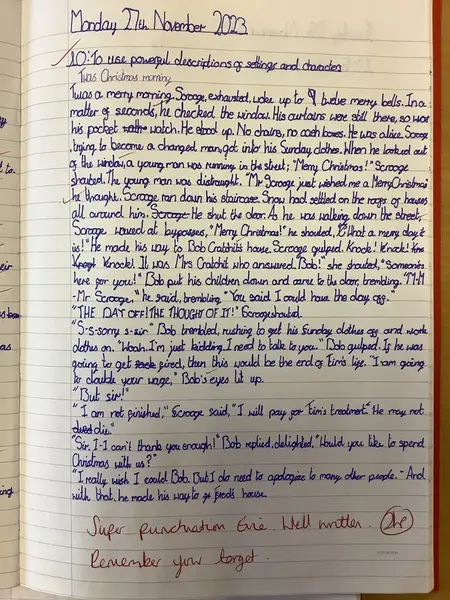 Monday 27th November 2023
LO: To use powerful descriptions of settings and characters
Twas Christmas morning
Twas a merry morning. Scrooge, exhausted, woke up to twelve merry bells. In a
matter of seconds, he checked the window. His curtains were still there, so was
his pocket watch. He stood up. No chains, no cash boxes. He was alive. Scrooge
trying to become a changed man, got into his Sunday clothes. When he looked out
of the window, a young man was running in the street; "Merry Christmas!" Scrooge
shouted. The young man was distraught. "Mr Scrooge just wished me a Merry Christmas!
he thought. Scrooge ran down his staircase. Snow had settled on the roofs of houses
all around him. Scrooge He shut the door. As he was walking down the street,
Scrooge waved at bypassers, "Merry Christmas!" he shouted, "What a merry day it
is!" He made his way to Bob Cratchits house. Scrooge gulped. Knock! Knock!
Knock! It was Mrs Cratchit who answered. "Bob!" she shouted, "Someones
here for you!" Bob put his children down and came to the door, trembling. "M-M
-Mr Scrooge," he said, trembling "You said I could have the day off."
"THE DAY OFF! THE THOUGHT OF IT!" Scrooge shouted.
"S-s-sorry s-sir" Bob trembled, rushing to get his Sunday clothes off and work
clothes on. "Woah. I'm just kidding. I need to talk to you." Bob gulped. If he was
going to get fired, then this would be the end of Tim's life. "I am going
to double your wage," Bob's eyes lit up.
"But sir!"
"I am not finished," Scrooge said, "I will pay for Tim's treatment" He may not
died die."
"Sir, I-I can't thank you enough!" Bob replied, delighted, "Would you like to spend
Christmas with us?"
"I really wish I could Bob. But I do need to apologize to many other people. - And
with that, he made his way to freds house.
Super punctuation Evie. Well written.
Remember your target.